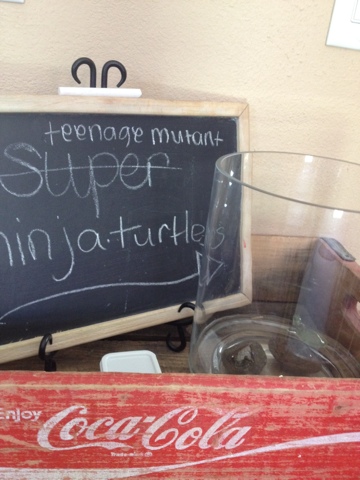 teenage mutant
Super
ninja turtles
Enjoy
Coca-Cola
Trade-mark ®